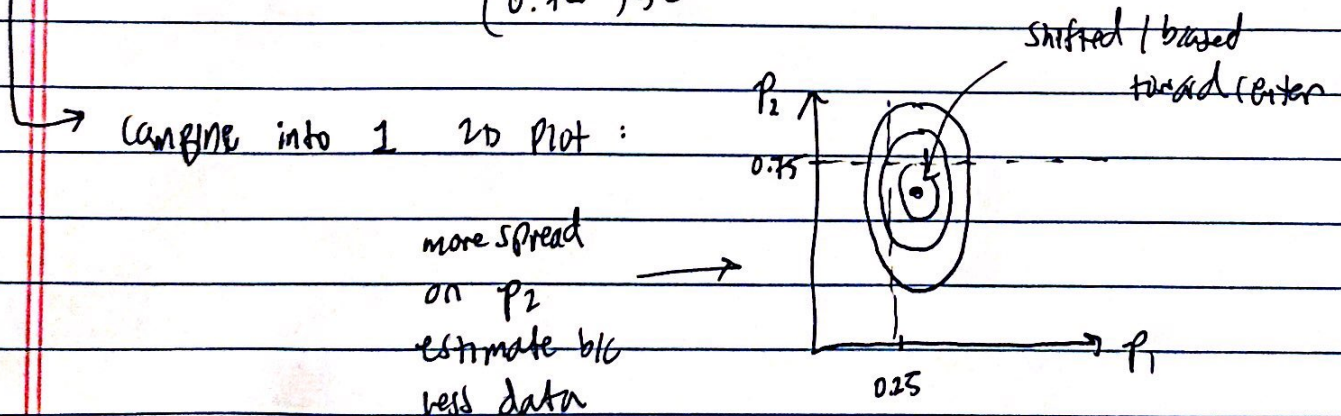 shifted / biased
toward center
P2
Combine into 1 2D plot :
0.75
more spread
on P2
estimate b/c
less data
P1
0.25